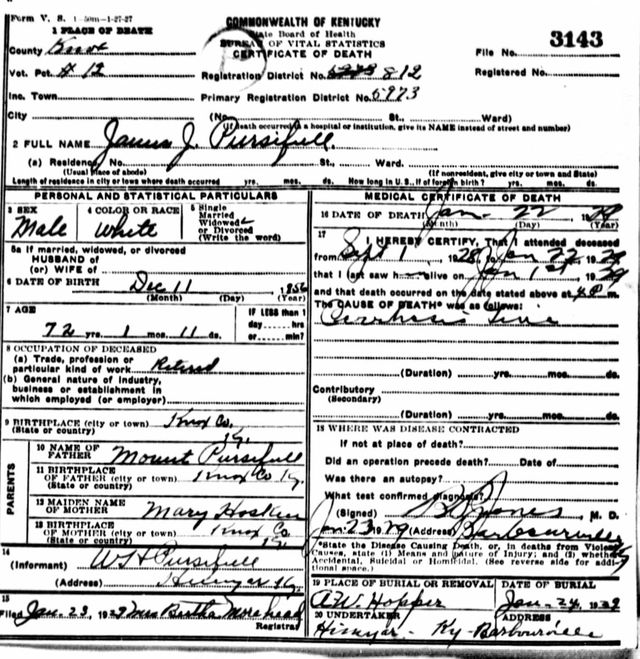 Form V. S. 1-50m-1-27-27
COMMONWEALTH OF KENTUCKY
State Board of Health
BUREAU OF VITAL STATISTICS
CERTIFICATE OF DEATH
1 PLACE OF DEATH
County Knox
File No. 3143
Vot. Pct. # 12
Registration District No. 812
Registered No.
Inc. Town
Primary Registration District No. 5973
City (No. St., Ward)
(If death occurred in a hospital or institution, give its NAME instead of street and number)
2 FULL NAME James J. Pursifull
(a) Residence. No. St., Ward.
(Usual place of abode) (If nonresident, give city or town and State)
Length of residence in city or town where death occurred yrs. mos. ds. How long in U.S., if of foreign birth? yrs. mos. ds.
PERSONAL AND STATISTICAL PARTICULARS
3 SEX Male
4 COLOR OR RACE White
5 Single
Married
Widowed
or Divorced
(Write the word)
5a If married, widowed, or divorced
HUSBAND of
(or) WIFE of
6 DATE OF BIRTH Dec 11 1856
(Month) (Day) (Year)
7 AGE
72 yrs. 1 mos. 11 ds.
IF LESS than 1
day hrs
or min?
8 OCCUPATION OF DECEASED
(a) Trade, profession or
particular kind of work Retired
(b) General nature of industry,
business or establishment in
which employed (or employer)
9 BIRTHPLACE (city or town) Knox Co.
(State or country) Ky.
PARENTS
10 NAME OF
FATHER Mount Pursifull
11 BIRTHPLACE
OF FATHER (city or town) Knox Co Ky.
(State or country)
12 MAIDEN NAME
OF MOTHER Mary Hoskin
13 BIRTHPLACE
OF MOTHER (city or town) Knox Co
(State or country) Ky.
14
(Informant) W H Pursifull
(Address) Hinyar Ky.
15
Filed Jan. 23, 1929 Mrs Bertha Morehead
Registrar
MEDICAL CERTIFICATE OF DEATH
16 DATE OF DEATH Jan. 22 1929
(Month) (Day) (Year)
17
I HEREBY CERTIFY, That I attended deceased
from Sept 1, 1928, to Jan 22, 1929
that I last saw h alive on Jan 1st, 1929
and that death occurred on the date stated above at 4 P m.
The CAUSE OF DEATH* was as follows:
Cerrhosis Liver
(Duration) yrs. mos. ds.
Contributory
(Secondary)
(Duration) yrs. mos. ds.
18 WHERE WAS DISEASE CONTRACTED
If not at place of death?
Did an operation precede death? Date of
Was there an autopsy?
What test confirmed diagnosis?
(Signed) Jones M. D.
Jan. 23 1929 (Address) Barbourville
*State the Disease Causing Death, or, in deaths from Violent
Causes, state (1) Means and nature of Injury; and (2) whether
Accidental, Suicidal or Homicidal. (See reverse side for addi-
tional space.)
19 PLACE OF BURIAL OR REMOVAL
DATE OF BURIAL
A.W. Hopper
Jan. 24, 1929
20 UNDERTAKER
ADDRESS
Hinyar - Ky - Barbourville